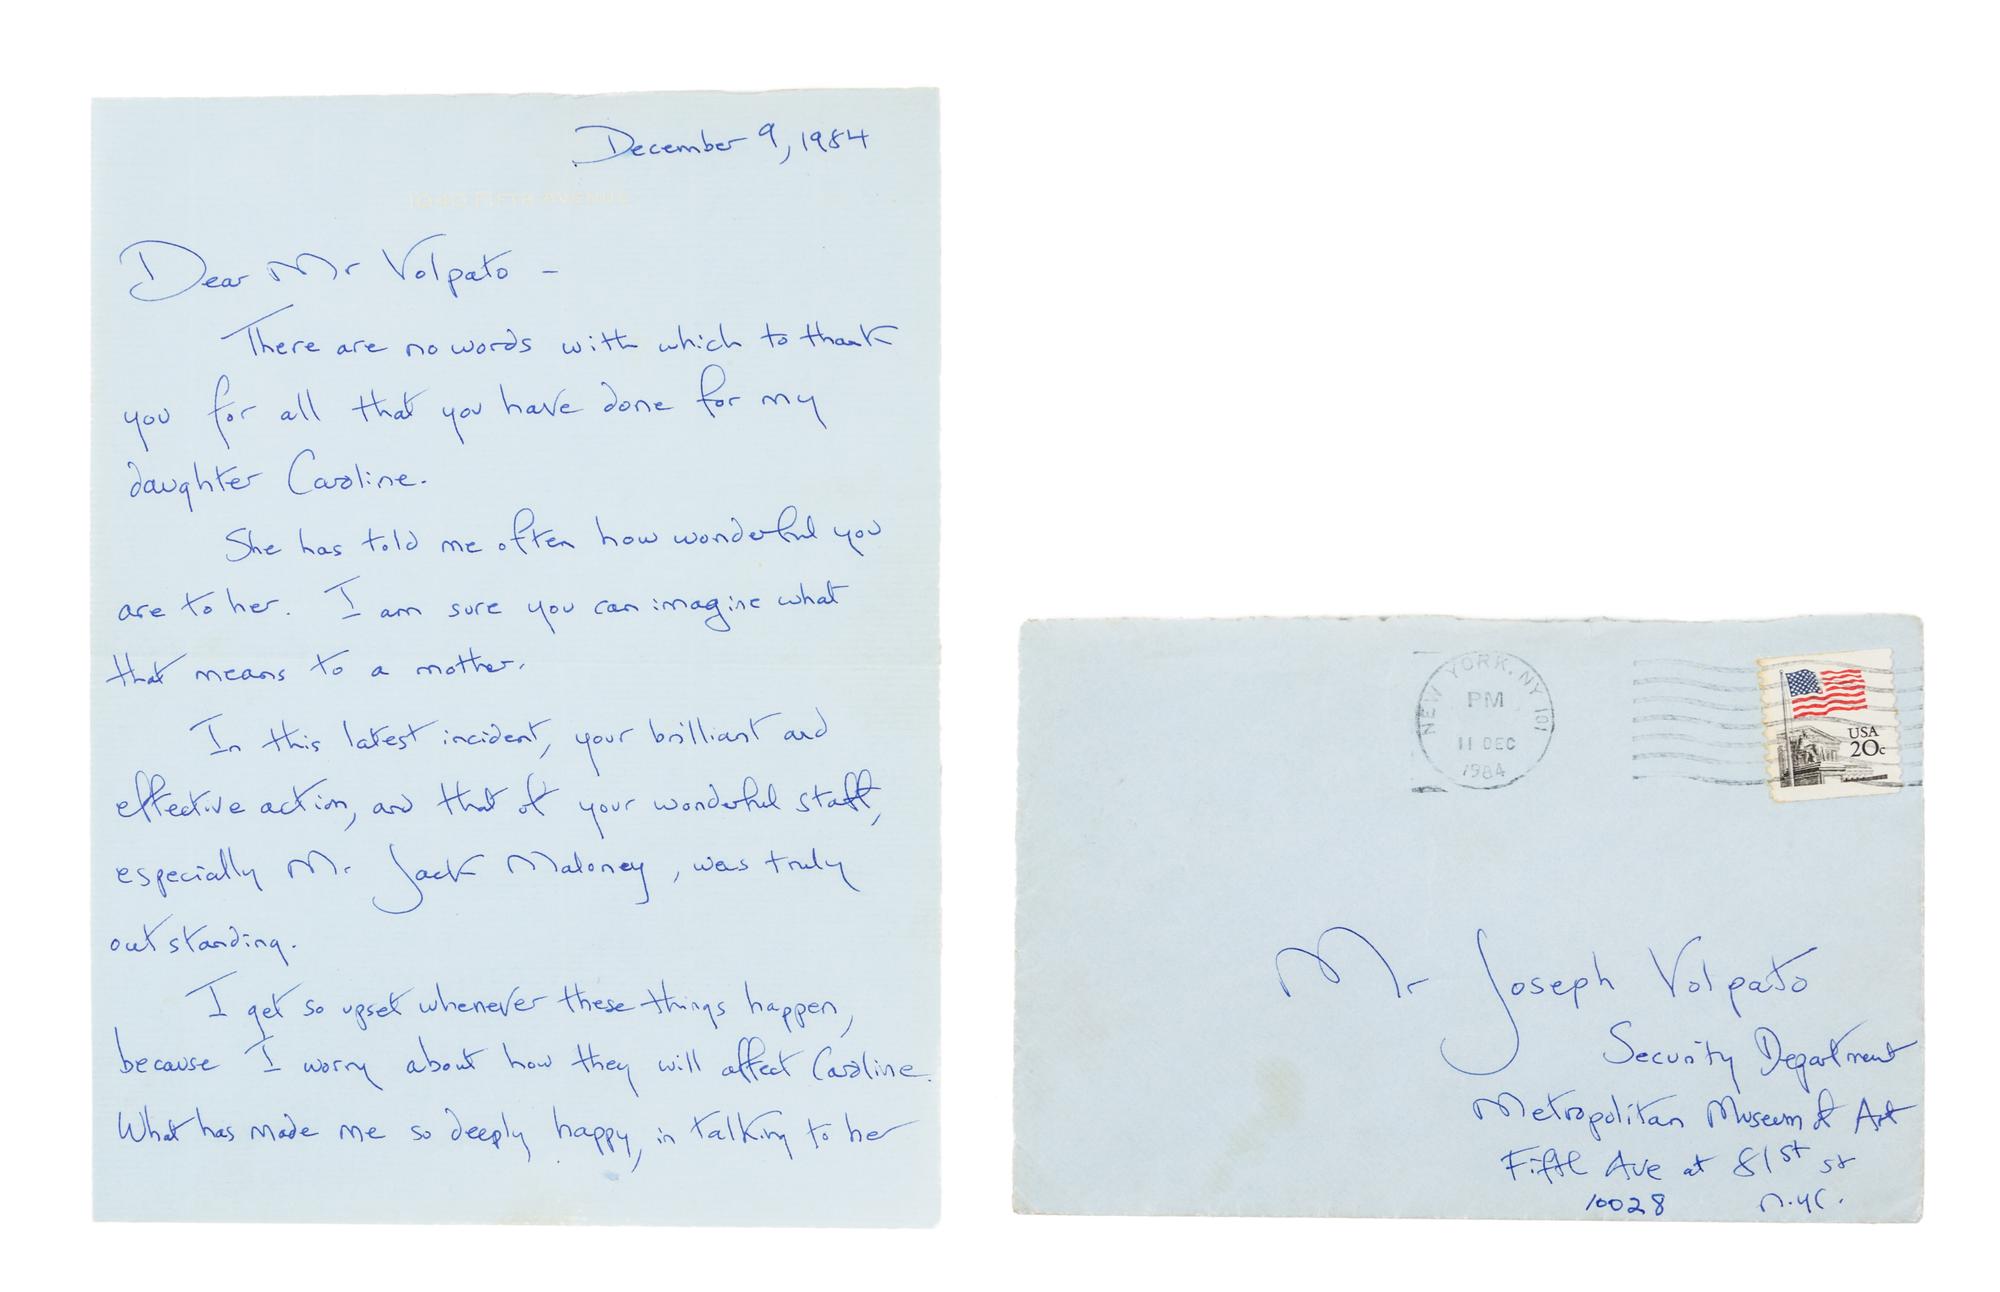 December 9, 1984
1040 FIFTH AVENUE
Dear Mr Volpato -
There are no words with which to thank
you for all that you have done for my
daughter Caroline.
She has told me often how wonderful you
are to her. I am sure you can imagine what
that means to a mother.
In this latest incident, your brilliant and
effective action, and that of your wonderful staff,
especially Mr. Jack Maloney, was truly
outstanding.
I get so upset whenever these things happen,
because I worry about how they will affect Caroline.
What has made me so deeply happy, in talking to her
NEW YORK, NY 101
PM
11 DEC
1984
USA
20c
Mr Joseph Volpato
Security Department
Metropolitan Museum of Art
Fifth Ave at 81st st
10028 N.Y.C.